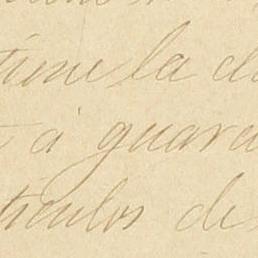 tiene la d
á guard
tículos de